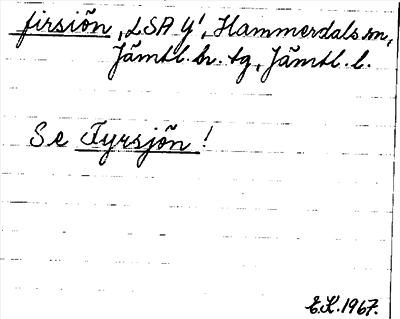 firsiön, LSA Y', Hammerdals sn,
Jämtl. n. tg, Jämtl. l.
Se Fyrsjön!
E.K. 1967.